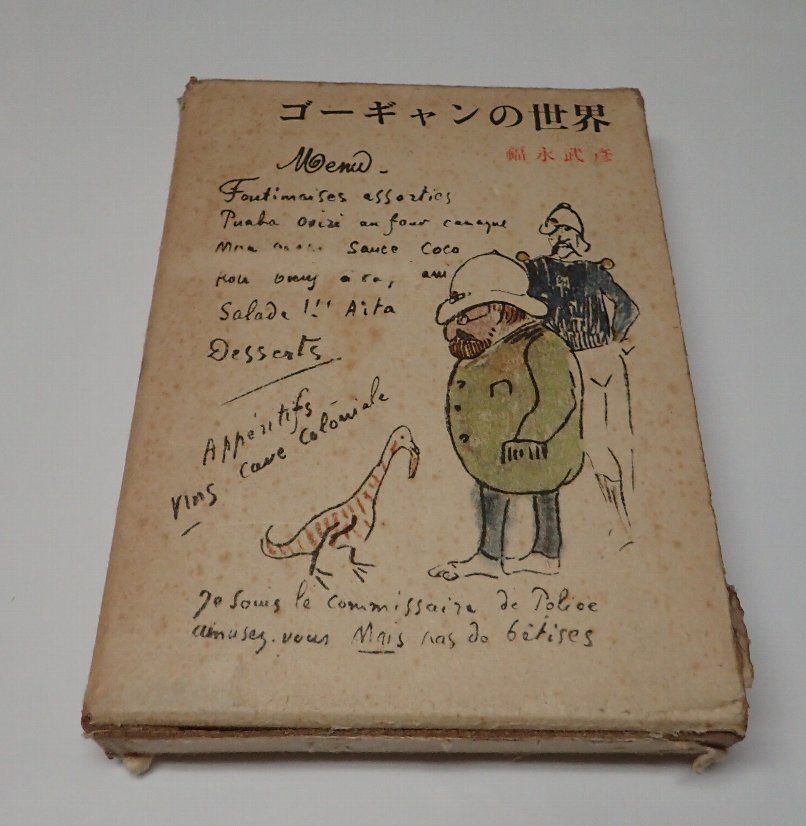 ゴーギャンの世界
福永武彦
Menu
assorties
au four canaque
Sauce Coco
Salade !!! Aita
Desserts
Appéritifs
Vins cave coloniale
Je sous le commissaire de Police
amusez-vous Mais pas de bêtises